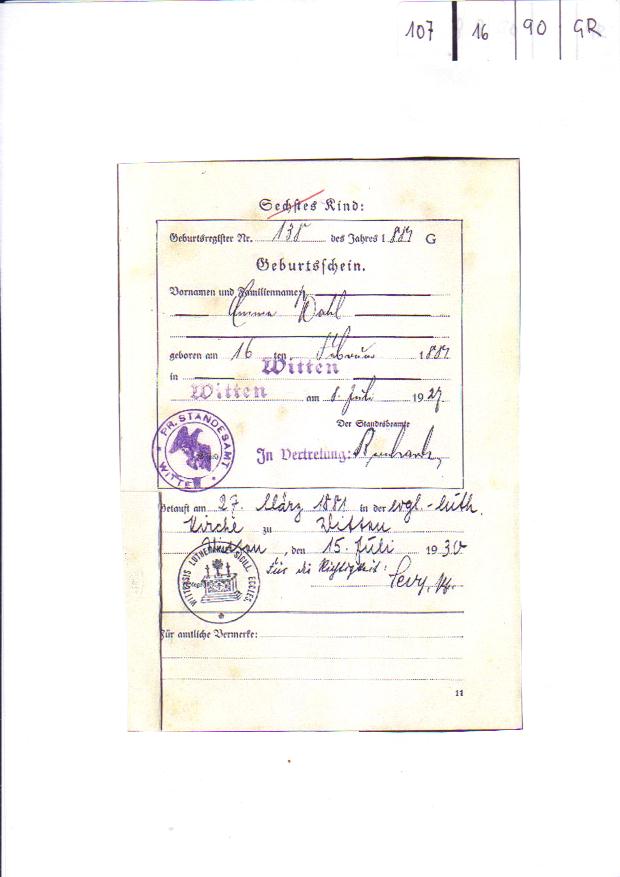 107 16 90 GR
Sechstes Kind:
Geburtsregister Nr. 138 des Jahres 1881 G
Geburtsschein.
Vornamen und Familienname:
Emma Wahl
geboren am 16 ten Februar 1881
in Witten
Witten am 8. Juli 1927
Der Standesbeamte
PR. STANDESAMT WITTEN
In Vertretung:
Getauft am 27. März 1881 in der evgl.-luth.
Kirche zu Witten
Witten, den 15. Juli 1930
Für die Richtigkeit:
Für amtliche Vermerke:
11